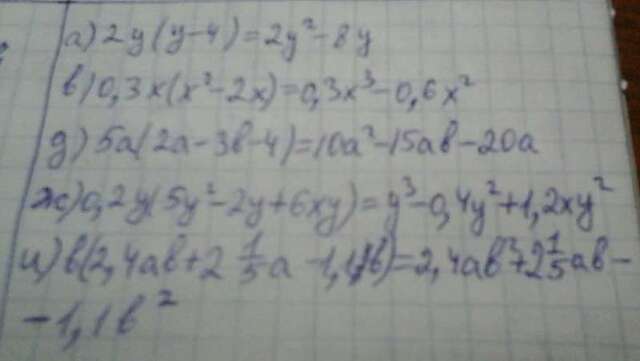 а) 2y(y-4)=2y²-8y
в) 0,3x(x²-2x)=0,3x³-0,6x²
д) 5a(2a-3b-4)=10a²-15ab-20a
ж) 0,2y(5y²-2y+6xy)=y³-0,4y²+1,2xy²
и) b(2,4ab+2 1/5 a -1,1b)=2,4ab²+2 1/5 ab-
-1,1b²